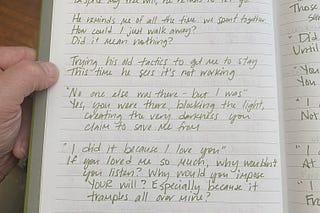 He reminds me of all the time we spent together
How could I just walk away?
Did it mean nothing?
Trying his old tactics to get me to stay
This time he sees it's not working
"No one else was there - but I was"
Yes, you were there, blocking the light,
creating the very darkness you
claim to save me from
"I did it because I love you"
If you loved me so much, why wouldn't
you listen? Why would you impose
YOUR will? Especially because it
tramples all over mine?
Those
"Did
Until
"
You
"I
Not
"I a
At
"I
From